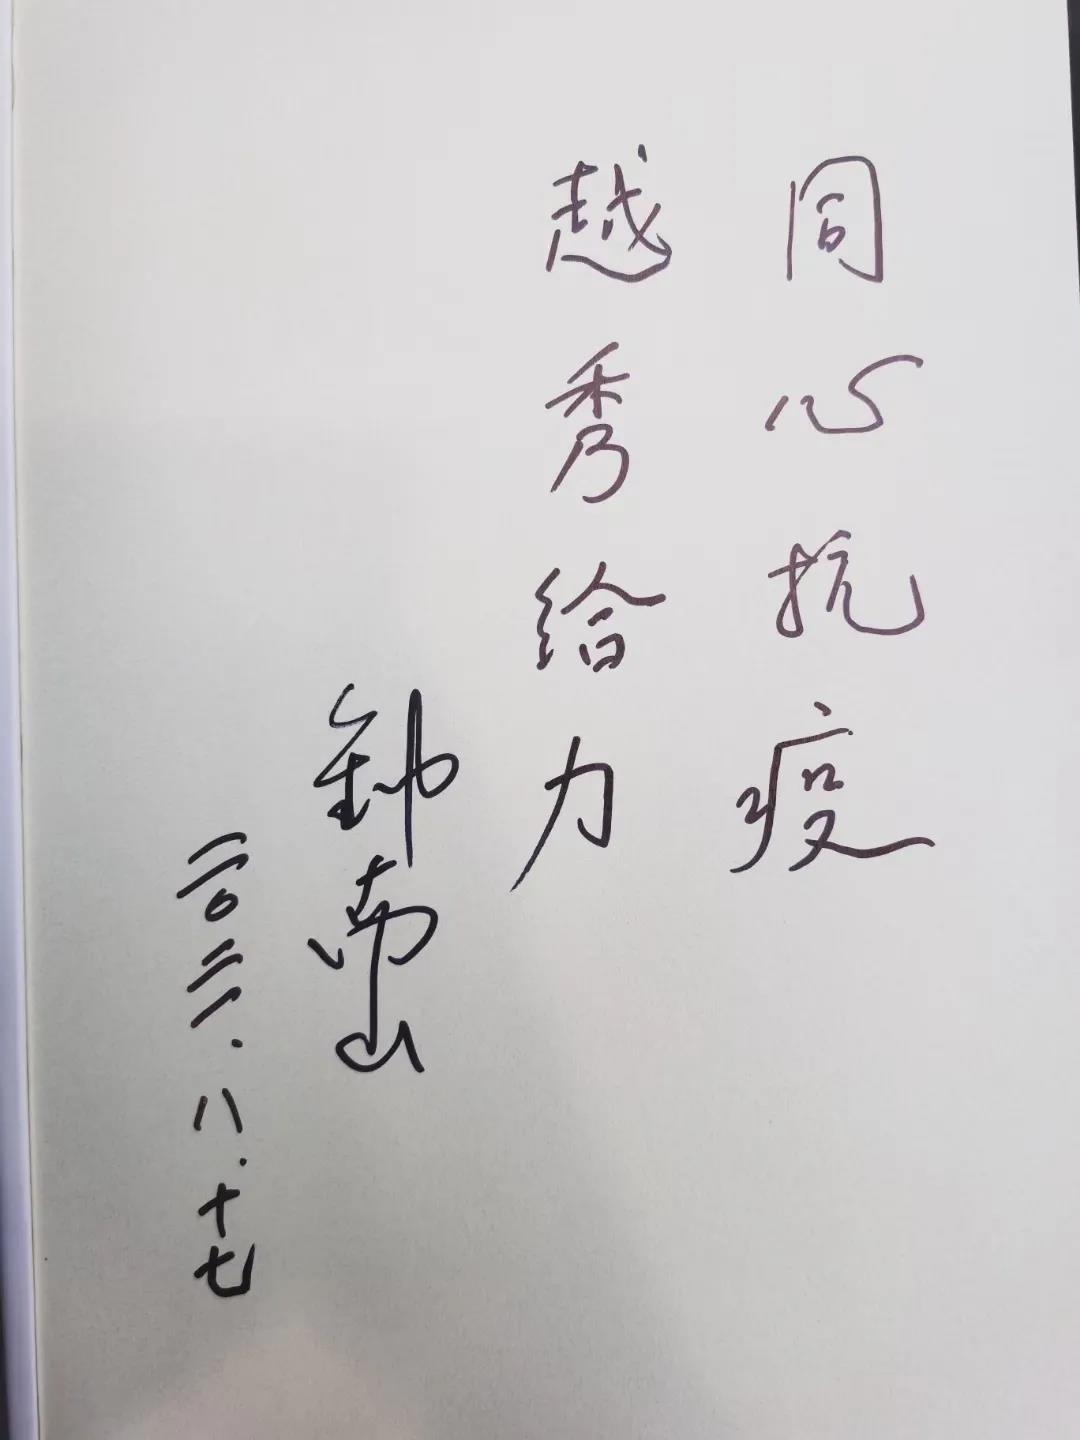 同心抗疫
越秀给力
钟南山
二〇二二.八.十七